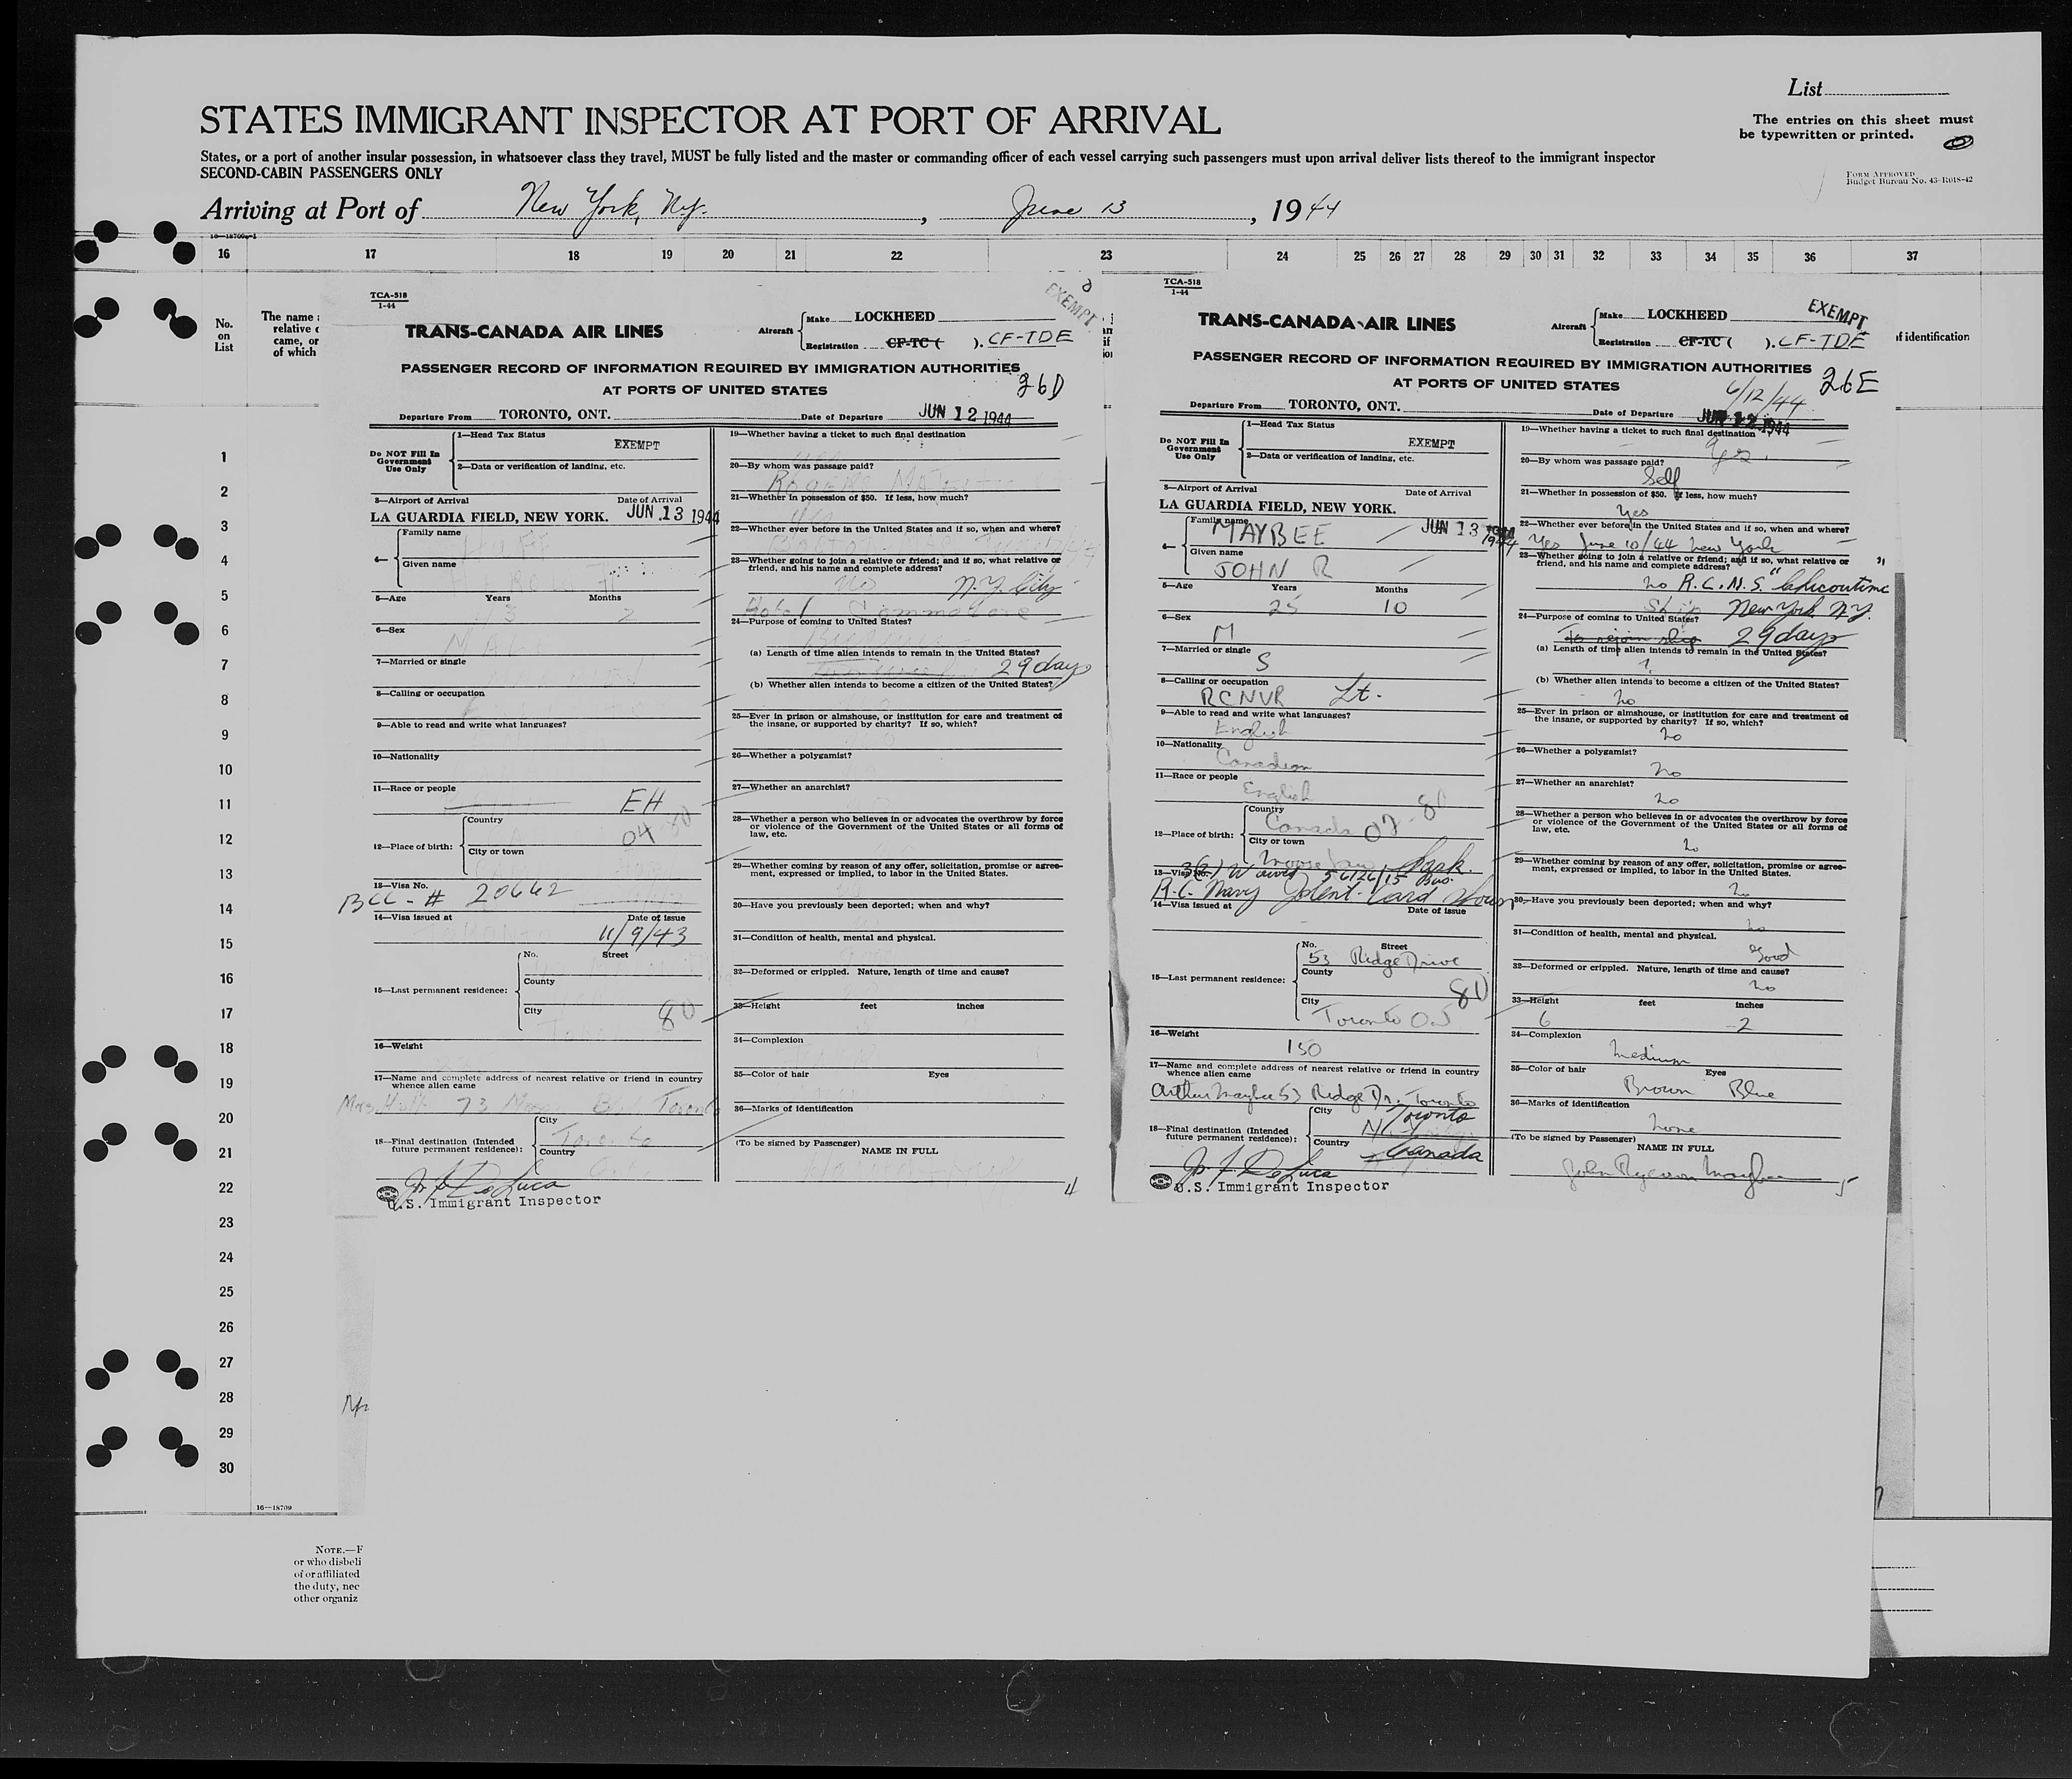 List
STATES IMMIGRANT INSPECTOR AT PORT OF ARRIVAL
The entries on this sheet must
be typewritten or printed.
States, or a port of another insular possession, in whatsoever class they travel, MUST be fully listed and the master or commanding officer of each vessel carrying such passengers must upon arrival deliver lists thereof to the immigrant inspector
SECOND-CABIN PASSENGERS ONLY
FORM APPROVED
Budget Bureau No. 43-R018-42
Arriving at Port of New York, N.Y., June 13, 1944
16 17 18 19 20 21 22 23 24 25 26 27 28 29 30 31 32 33 34 35 36 37
No.
on
List
The name
relative
came, or
of which
of identification
1
2
3
4
5
6
7
8
9
10
11
12
13
14
15
16
17
18
19
20
21
22
23
24
25
26
27
28
29
30
16-18709
NOTE.—F
or who disbeli
of or affiliated
the duty, nec
other organiz
TCA-518
1-44
EXEMPT
TRANS-CANADA AIR LINES
Aircraft
Make LOCKHEED
Registration CF-TC ( ). CF-TDE
PASSENGER RECORD OF INFORMATION REQUIRED BY IMMIGRATION AUTHORITIES
AT PORTS OF UNITED STATES
26D
Departure From TORONTO, ONT. Date of Departure JUN 12 1944
Do NOT Fill In
Government
Use Only
1—Head Tax Status EXEMPT
2—Data or verification of landing, etc.
3—Airport of Arrival Date of Arrival
LA GUARDIA FIELD, NEW YORK. JUN 13 1944
4—
Family name
Given name
5—Age Years Months
6—Sex
7—Married or single
8—Calling or occupation
9—Able to read and write what languages?
10—Nationality
11—Race or people
EH
12—Place of birth:
Country
04 80
City or town
13—Visa No.
BCC - # 20662
14—Visa issued at Date of issue
11/9/43
15—Last permanent residence:
No. Street
County
City
80
16—Weight
17—Name and complete address of nearest relative or friend in country
whence alien came
18—Final destination (Intended
future permanent residence):
City
Toronto
Country
Jos. F. DeLuca
U.S. Immigrant Inspector
19—Whether having a ticket to such final destination
20—By whom was passage paid?
21—Whether in possession of $50. If less, how much?
22—Whether ever before in the United States and if so, when and where?
23—Whether going to join a relative or friend; and if so, what relative or
friend, and his name and complete address?
no N.Y. City
Hotel Commodore
24—Purpose of coming to United States?
Business
(a) Length of time alien intends to remain in the United States?
29 days
(b) Whether alien intends to become a citizen of the United States?
25—Ever in prison or almshouse, or institution for care and treatment of
the insane, or supported by charity? If so, which?
26—Whether a polygamist?
27—Whether an anarchist?
28—Whether a person who believes in or advocates the overthrow by force
or violence of the Government of the United States or all forms of
law, etc.
29—Whether coming by reason of any offer, solicitation, promise or agree-
ment, expressed or implied, to labor in the United States.
30—Have you previously been deported; when and why?
31—Condition of health, mental and physical.
32—Deformed or crippled. Nature, length of time and cause?
33—Height feet inches
34—Complexion
35—Color of hair Eyes
36—Marks of identification
(To be signed by Passenger)
NAME IN FULL
4
TCA-518
1-44
EXEMPT
TRANS-CANADA AIR LINES
Aircraft
Make LOCKHEED
Registration CF-TC ( ). CF-TDE
PASSENGER RECORD OF INFORMATION REQUIRED BY IMMIGRATION AUTHORITIES
AT PORTS OF UNITED STATES
26E
6/12/44
Departure From TORONTO, ONT. Date of Departure JUN 12 1944
Do NOT Fill In
Government
Use Only
1—Head Tax Status EXEMPT
2—Data or verification of landing, etc.
3—Airport of Arrival Date of Arrival
LA GUARDIA FIELD, NEW YORK.
JUN 13 1944
4—
Family name
MAYBEE
Given name
JOHN R
5—Age Years Months
25 10
6—Sex
M
7—Married or single
S
8—Calling or occupation
RCNVR Lt.
9—Able to read and write what languages?
English
10—Nationality
Canadian
11—Race or people
English
12—Place of birth:
Country
Canada 07 80
City or town
Moose Jaw Sask.
13—Visa No.
Waived 56126/15
R.C. Navy Ident. Card
14—Visa issued at Date of issue
15—Last permanent residence:
No. Street
53 Ridge Drive
County
80
City
Toronto Ont
16—Weight
150
17—Name and complete address of nearest relative or friend in country
whence alien came
Arthur Maybee 53 Ridge Dr. Toronto
18—Final destination (Intended
future permanent residence):
City
Toronto
Country
Canada
Jos. F. DeLuca
U.S. Immigrant Inspector
19—Whether having a ticket to such final destination
Yes.
20—By whom was passage paid?
Self
21—Whether in possession of $50. If less, how much?
Yes
22—Whether ever before in the United States and if so, when and where?
Yes June 10/44 New York
23—Whether going to join a relative or friend; and if so, what relative or
friend, and his name and complete address?
no R.C.N.S. "Chicoutimi"
Ship New York N.Y.
24—Purpose of coming to United States?
To rejoin ship 29 days
(a) Length of time alien intends to remain in the United States?
?
(b) Whether alien intends to become a citizen of the United States?
no
25—Ever in prison or almshouse, or institution for care and treatment of
the insane, or supported by charity? If so, which?
no
26—Whether a polygamist?
no
27—Whether an anarchist?
no
28—Whether a person who believes in or advocates the overthrow by force
or violence of the Government of the United States or all forms of
law, etc.
no
29—Whether coming by reason of any offer, solicitation, promise or agree-
ment, expressed or implied, to labor in the United States.
no
30—Have you previously been deported; when and why?
no
31—Condition of health, mental and physical.
Good
32—Deformed or crippled. Nature, length of time and cause?
no
33—Height feet inches
6 2
34—Complexion
Medium
35—Color of hair Eyes
Brown Blue
36—Marks of identification
None
(To be signed by Passenger)
NAME IN FULL
John Ryerson Maybee
5